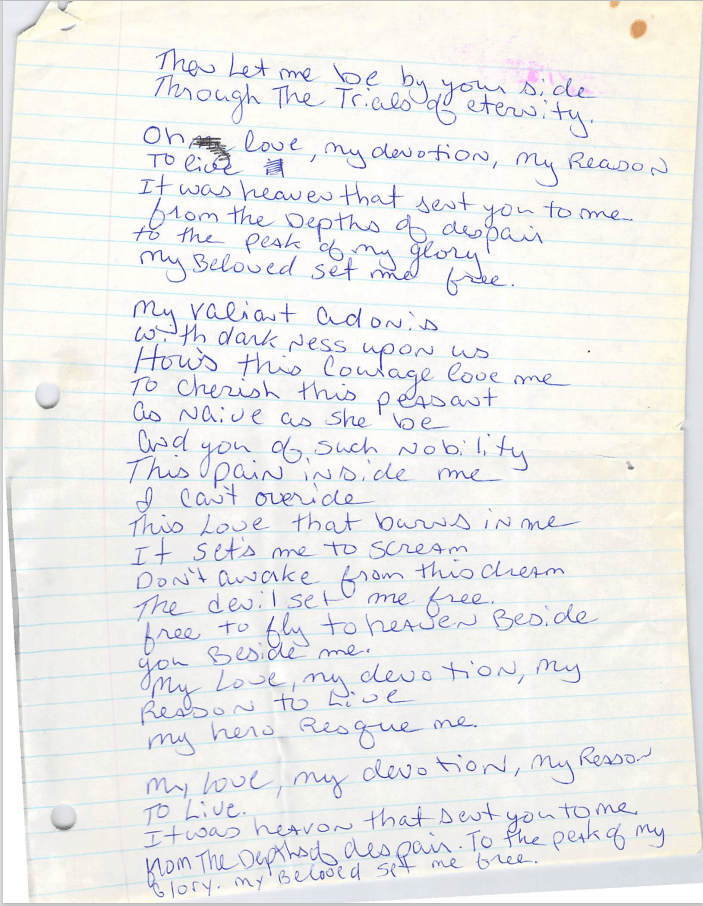 Then Let me be by your side
Through The Trials of eternity.
Oh love, my devotion, my Reason
To live
It was heaven that sent you to me
from the Depths of despair
to the peak of my glory
my Beloved set me free.
My valiant adonis
with darkness upon us
How's this Courage love me
To cherish this peasant
as Naive as she be
and you of such Nobility
This pain inside me
I can't overide
This Love that burns in me
It set's me to scream
Don't awake from this dream
The devil set me free.
free to fly to heaven Beside
you Beside me.
My Love, my devotion, my
Reason to Live
my hero Resque me.
my love, my devotion, my Reason
To Live.
It was heavon that sent you to me
from The Depths of despair. To the peak of my
Glory. my Beloved set me free.